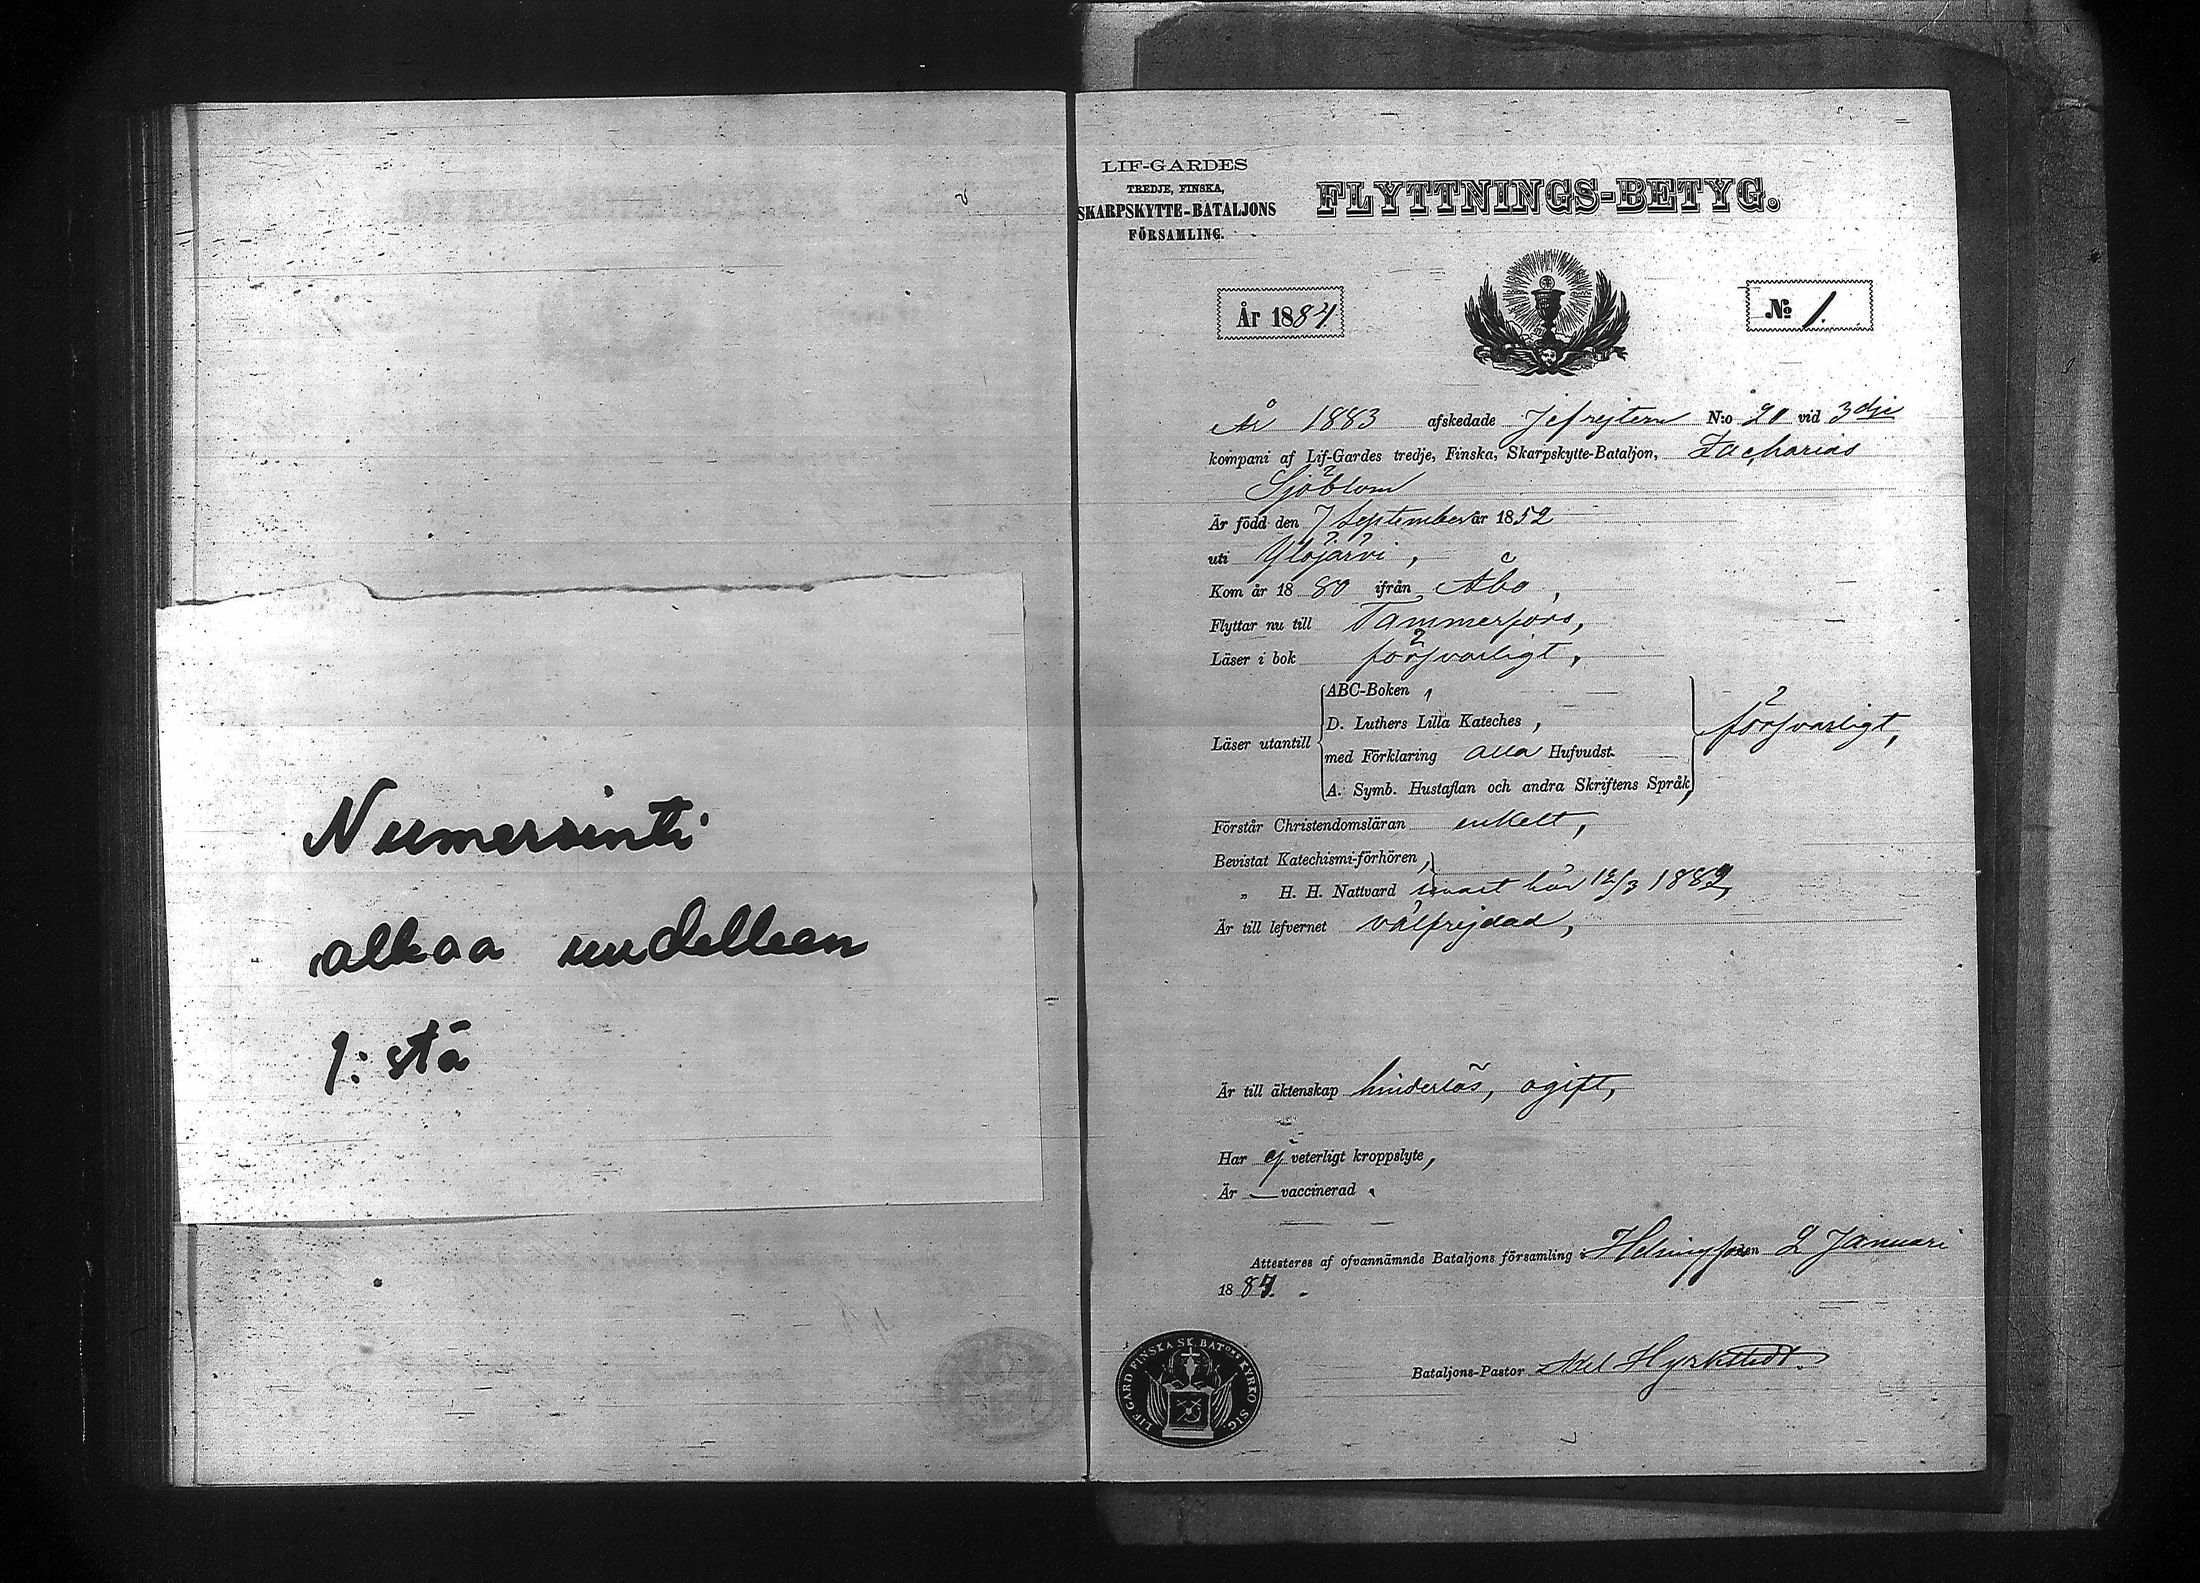 Numerointi
alkaa uudelleen
1:stä
LIF-GARDES
TREDJE, FINSKA,
SKARPSKYTTE-BATALJONS
FÖRSAMLING.
FLYTTNINGS-BETYG.
År 1884.
No 1.
År 1883 afskedade Jefrejtern N:o 20 vid 3dje
kompani af Lif-Gardes tredje, Finska, Skarpskytte-Bataljon, Zacharias
Sjöblom
Är född den 7 September år 1852
uti Ylöjärvi,
Kom år 1880 ifrån Åbo,
Flyttar nu till Tammerfors,
Läser i bok försvarligt,
Läser utantill
ABC-Boken,
D. Luthers Lilla Kateches,
med Förklaring alla Hufvudst.
A. Symb. Hustaflan och andra Skriftens Språk,
försvarligt,
Förstår Christendomsläran enkelt,
Bevistat Katechismi-förhören,
„ H. H. Nattvard senast här 12/3 1882,
Är till lefvernet välfrejdad,
Är till äktenskap hinderlös, ogift,
Har ej veterligt kroppslyte,
Är — vaccinerad.
Attesteres af ofvannämnde Bataljons församling i Helsingfors den 2 Januari
1884.
Bataljons-Pastor Axel Hyrkstedt.
LIF-GARD FINSKA SK. BATons KYRKO SIG.